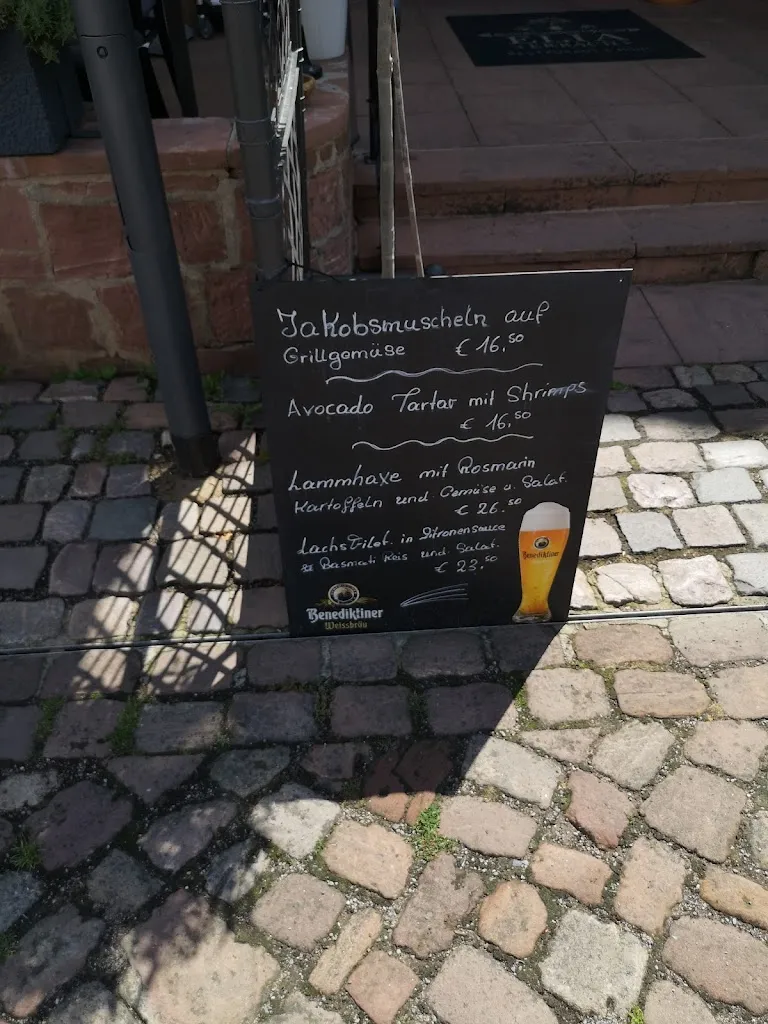 Jakobsmuscheln auf
Grillgemäse € 16,50
Avocado Tartar mit Shrimps
€ 16,50
Lammhaxe mit Rosmarin
Kartoffeln und Gemüse u. Salat.
€ 26.50
Lachsfilet in Zitronensauce
Basmati Reis und Salat.
€ 23.50
Benediktiner
Weissbräu
Benediktiner